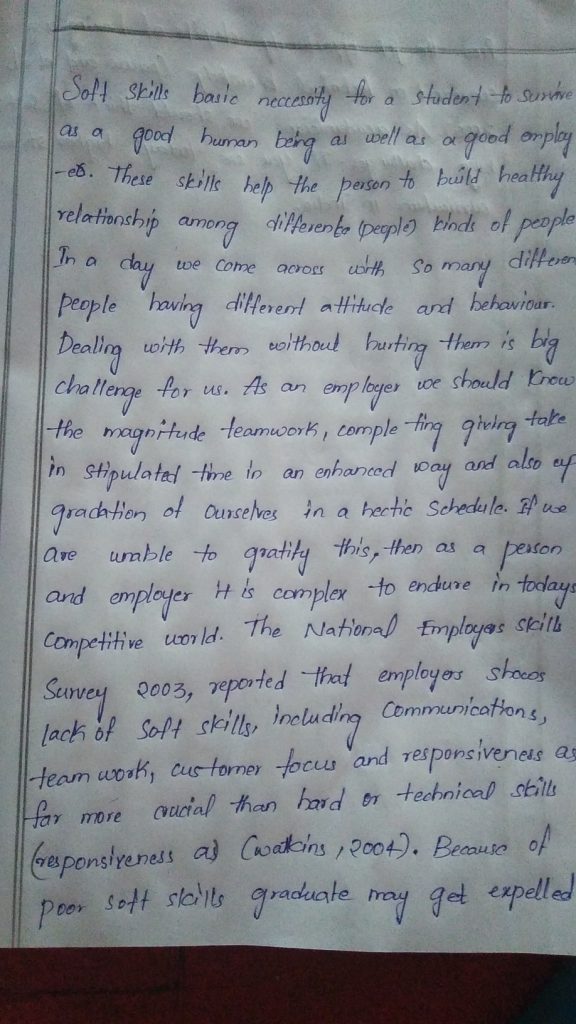 Soft skills basic neccessity for a student to survive
as a good human being as well as a good employ
-er. These skills help the person to build healthy
relationship among different (people) kinds of people
In a day we come across with so many differen
people having different attitude and behaviour.
Dealing with them without hurting them is big
challenge for us. As an employer we should know
the magnitude teamwork, comple ting giving take
in stipulated time in an enhanced way and also up
gradation of ourselves in a hectic schedule. If we
are unable to gratify this, then as a person
and employer it is complex to endure in todays
competitive world. The National Employers skills
Survey 2003, reported that employers shows
lack of soft skills, including communications,
team work, customer focus and responsiveness as
far more crucial than hard or technical skills
(responsiveness as) (watkins, 2004). Because of
poor soft skills graduate may get expelled